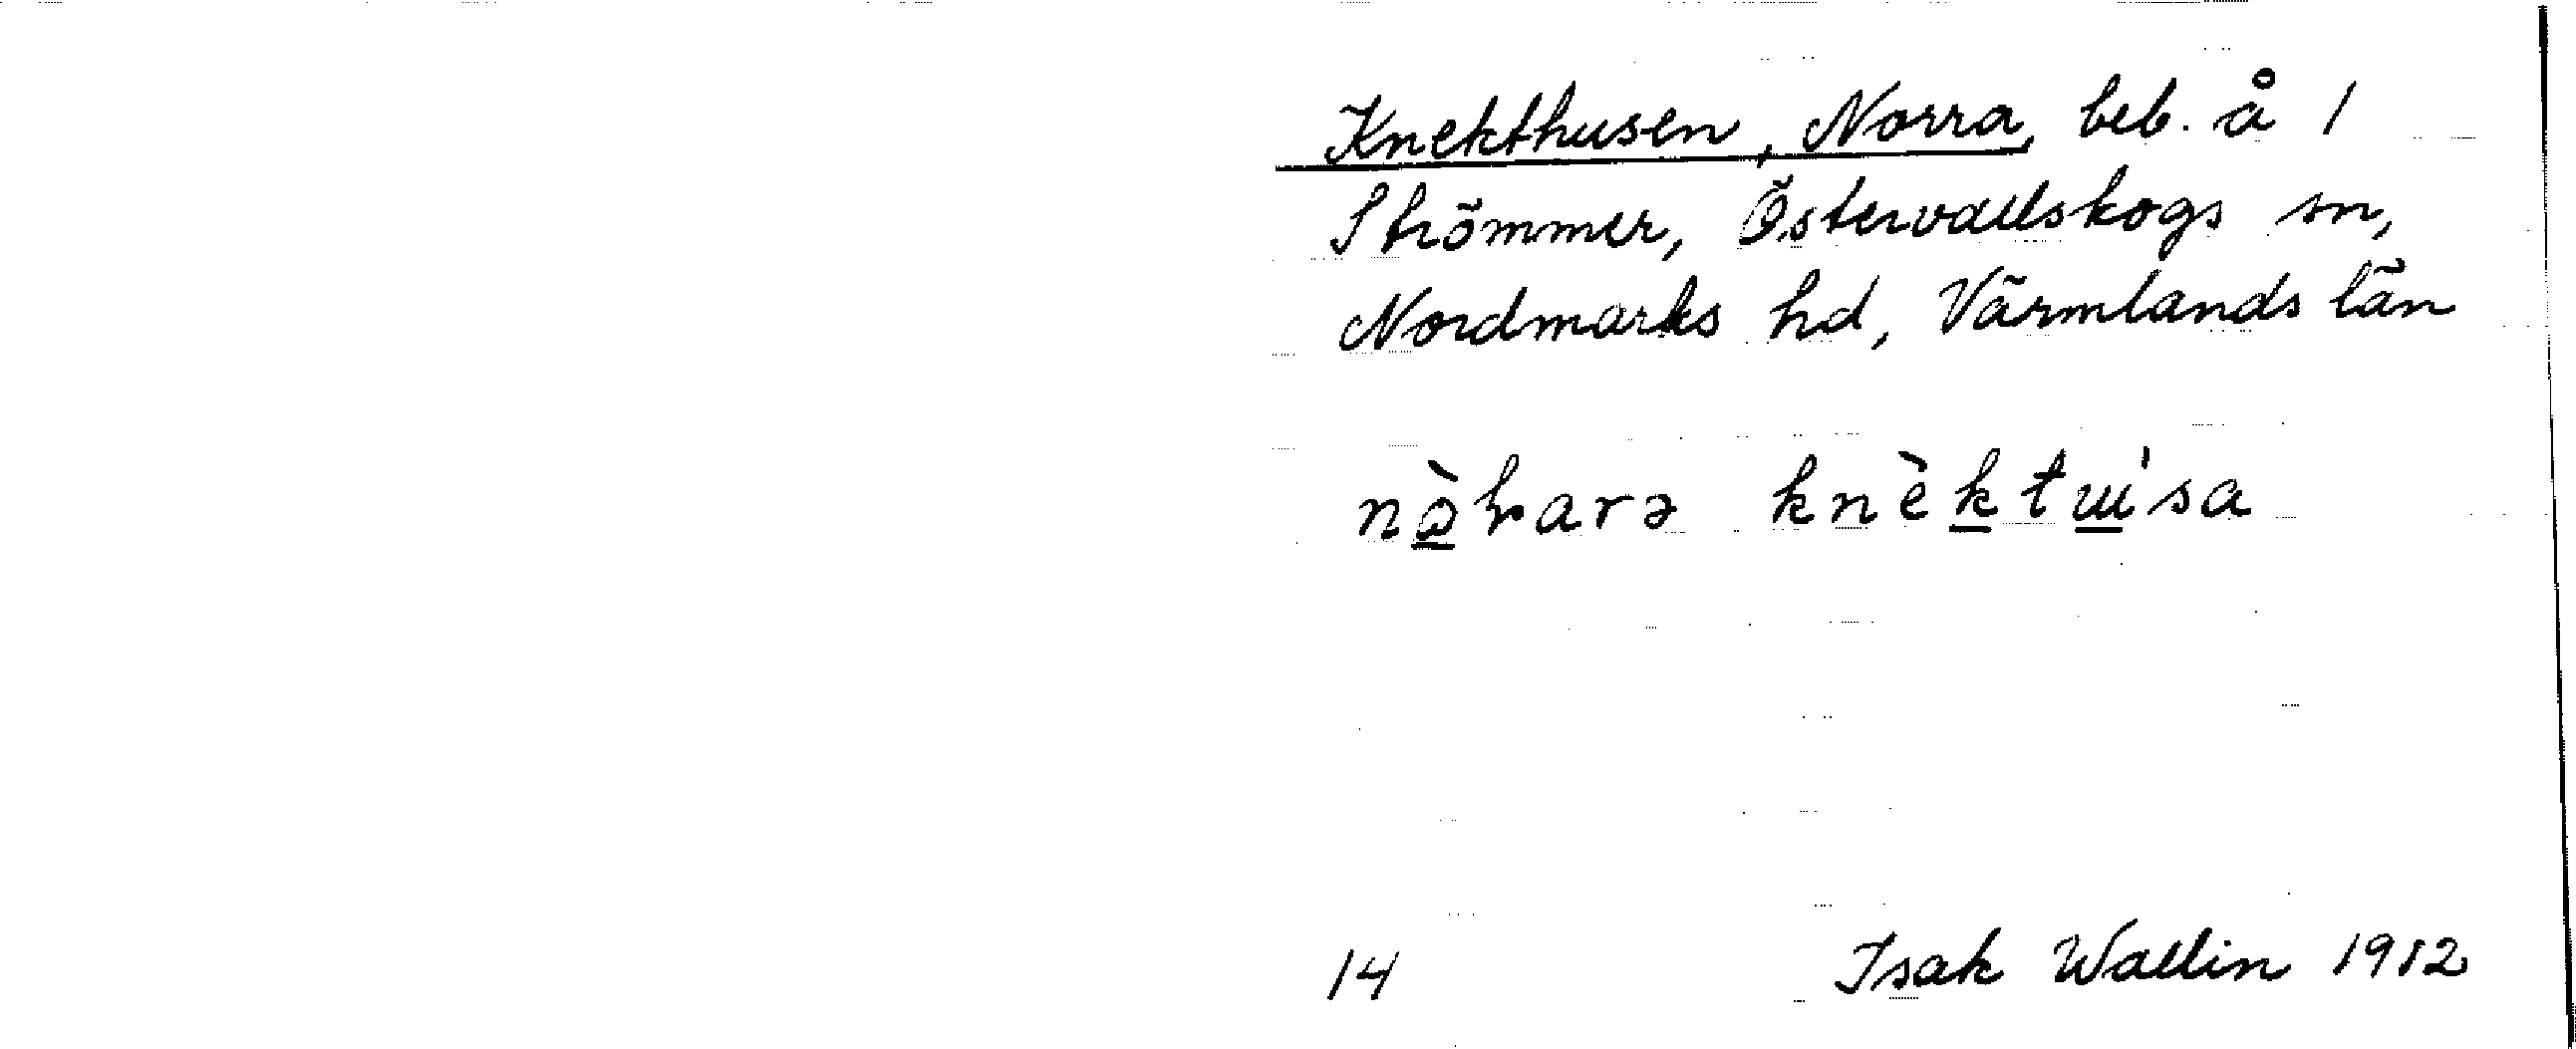 Knekthusen, Norra, beb. å 1
Strömmer, Östervallskogs sn,
Nordmarks hd, Värmlands län
knèktɯ́sa
14 Isak Wallin 1912